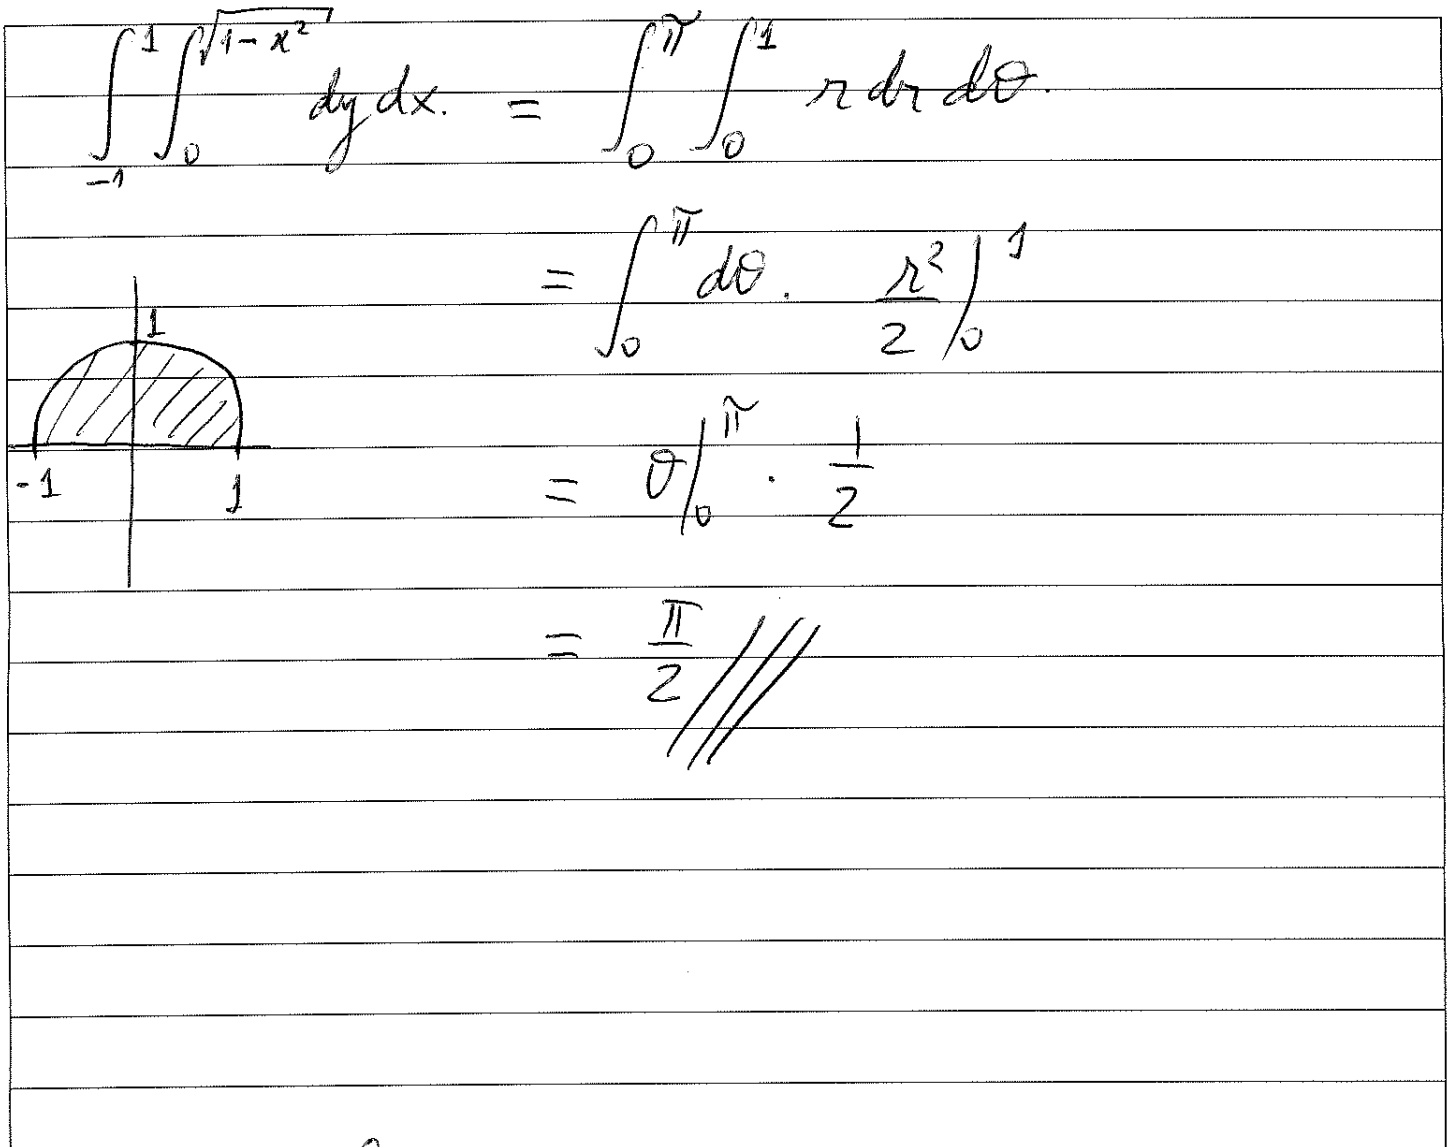 ∫_{-1}^{1} ∫_{0}^{√(1-x²)} dy dx. = ∫_{0}^{π} ∫_{0}^{1} r dr dθ.
= ∫_{0}^{π} dθ. r²/2 |_{0}^{1}
1
-1 1
= θ|_{0}^{π} · 1/2
= π/2